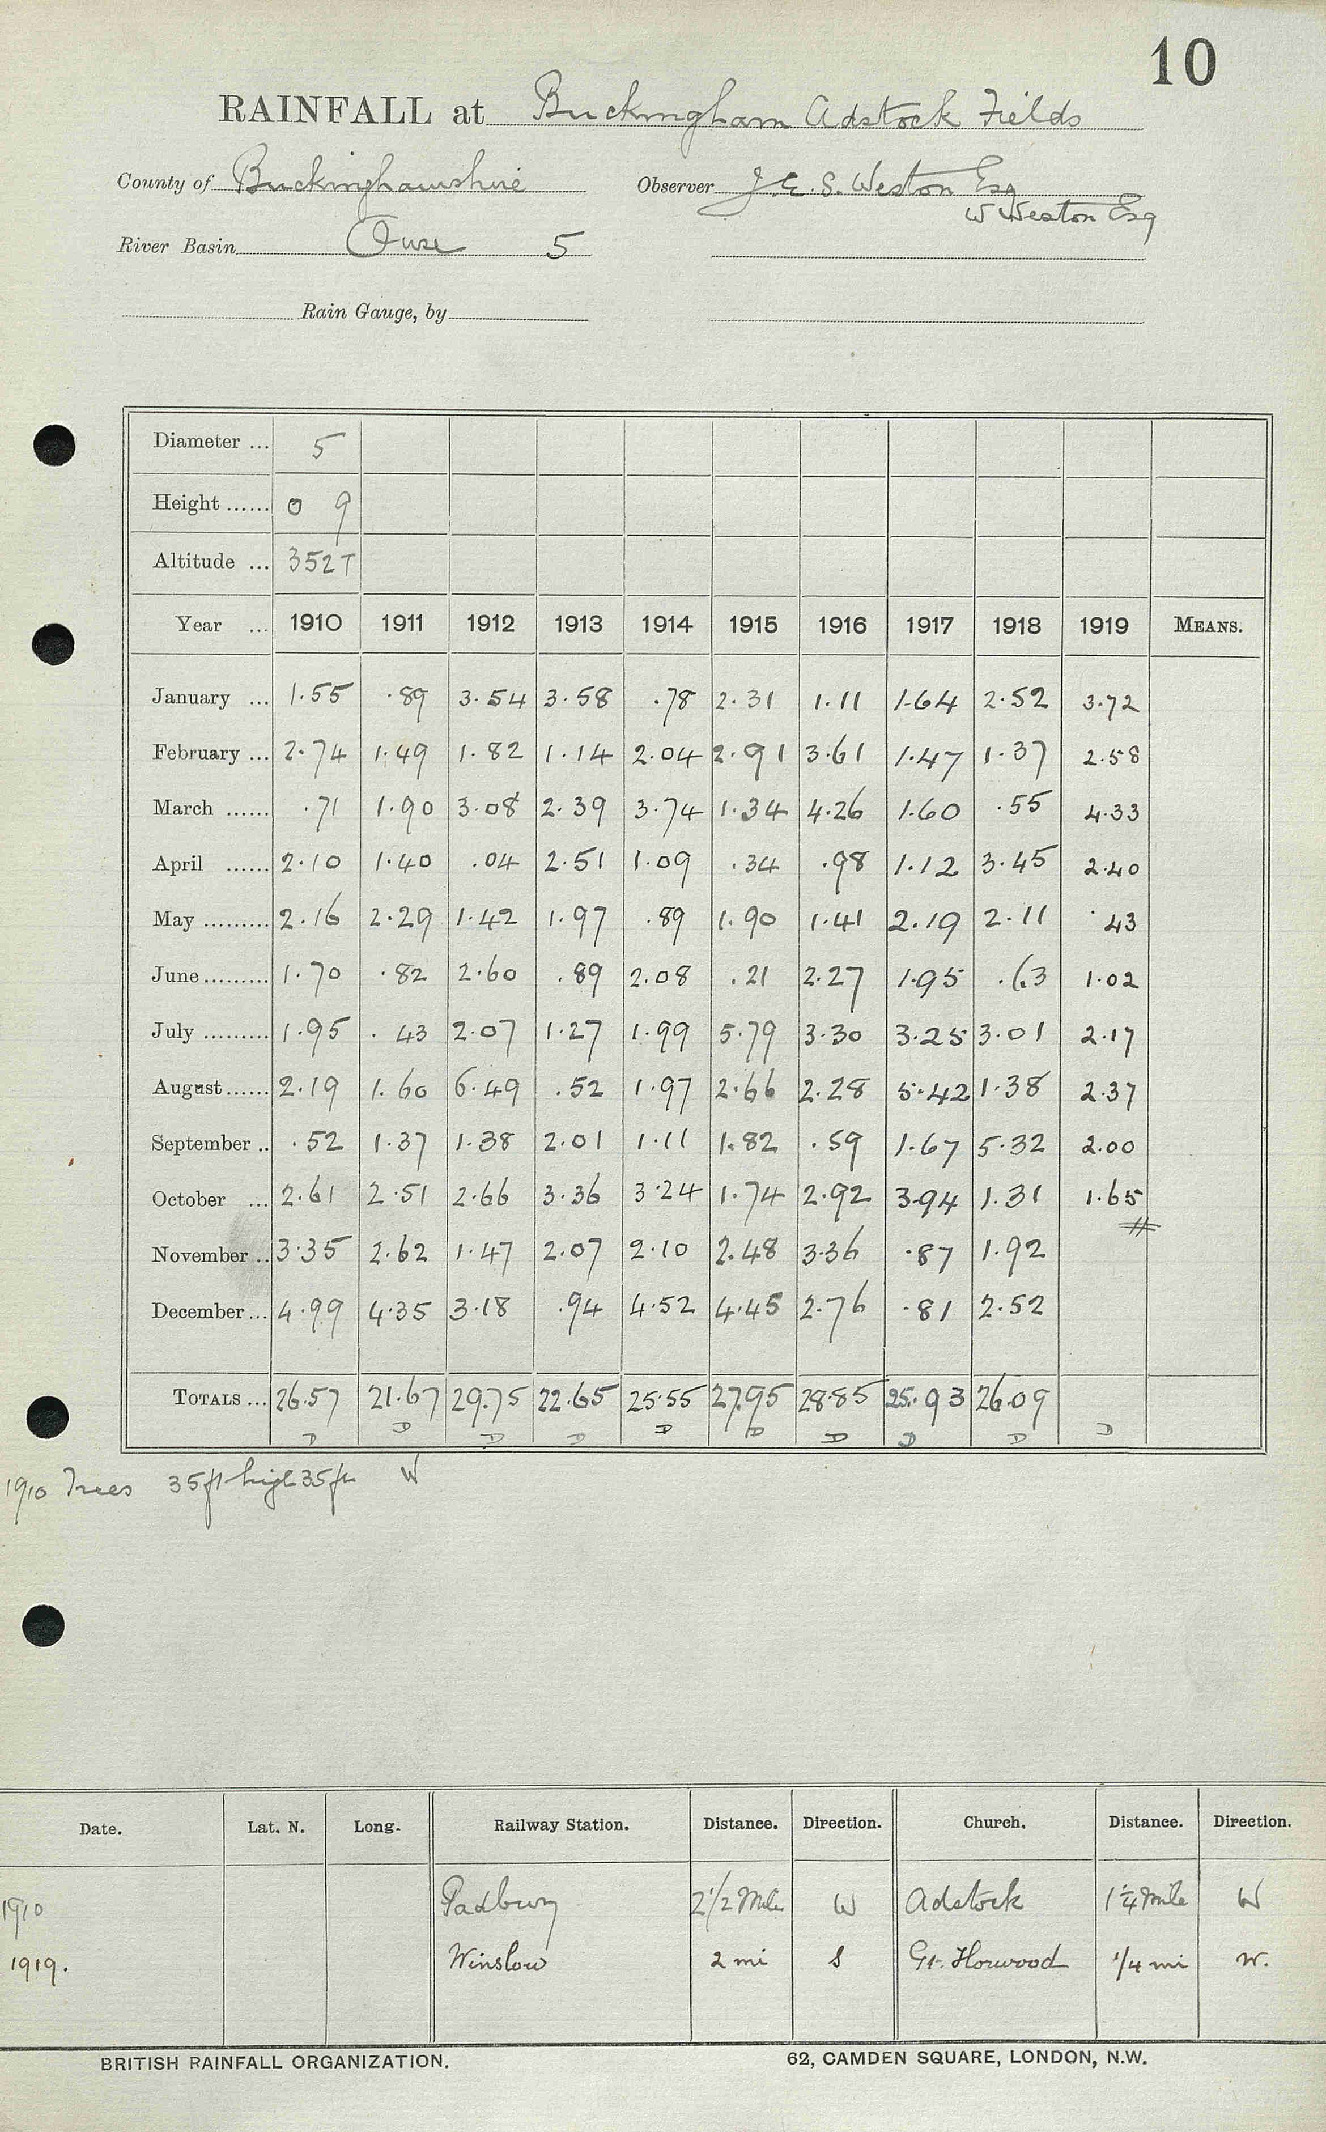 10
RAINFALL at Buckingham Adstock Fields
County of Buckinghamshire Observer J. E. S. Weston Esq
W Weston Esq
River Basin Ouse 5
Rain Gauge, by
Diameter ... 5
Height ...... 0 9
Altitude ... 352 T
Year ... 1910 1911 1912 1913 1914 1915 1916 1917 1918 1919 MEANS.
January ... 1.55 .89 3.54 3.58 .78 2.31 1.11 1.64 2.52 3.72
February ... 2.74 1.49 1.82 1.14 2.04 2.91 3.61 1.47 1.37 2.58
March ...... .71 1.90 3.08 2.39 3.74 1.34 4.26 1.60 .55 4.33
April ...... 2.10 1.40 .04 2.51 1.09 .34 .98 1.12 3.45 2.40
May ......... 2.16 2.29 1.42 1.97 .89 1.90 1.41 2.19 2.11 .43
June ......... 1.70 .82 2.60 .89 2.08 .21 2.27 1.95 .63 1.02
July ......... 1.95 .43 2.07 1.27 1.99 5.79 3.30 3.25 3.01 2.17
August ...... 2.19 1.60 6.49 .52 1.97 2.66 2.28 5.42 1.38 2.37
September .. .52 1.37 1.38 2.01 1.11 1.82 .59 1.67 5.32 2.00
October ... 2.61 2.51 2.66 3.36 3.24 1.74 2.92 3.94 1.31 1.65
November .. 3.35 2.62 1.47 2.07 2.10 2.48 3.36 .87 1.92
December ... 4.99 4.35 3.18 .94 4.52 4.45 2.76 .81 2.52
TOTALS ... 26.57 21.67 29.75 22.65 25.55 27.95 28.85 25.93 26.09
D D D D D D D D D D
1910 Trees 35 ft high 35 ft W
Date. Lat. N. Long. Railway Station. Distance. Direction. Church. Distance. Direction.
1910 Padbury 2 1/2 Mile W Adstock 1 1/4 mile W
1919. Winslow 2 mi S Gt. Horwood 1/4 mi W.
BRITISH RAINFALL ORGANIZATION. 62, CAMDEN SQUARE, LONDON, N.W.